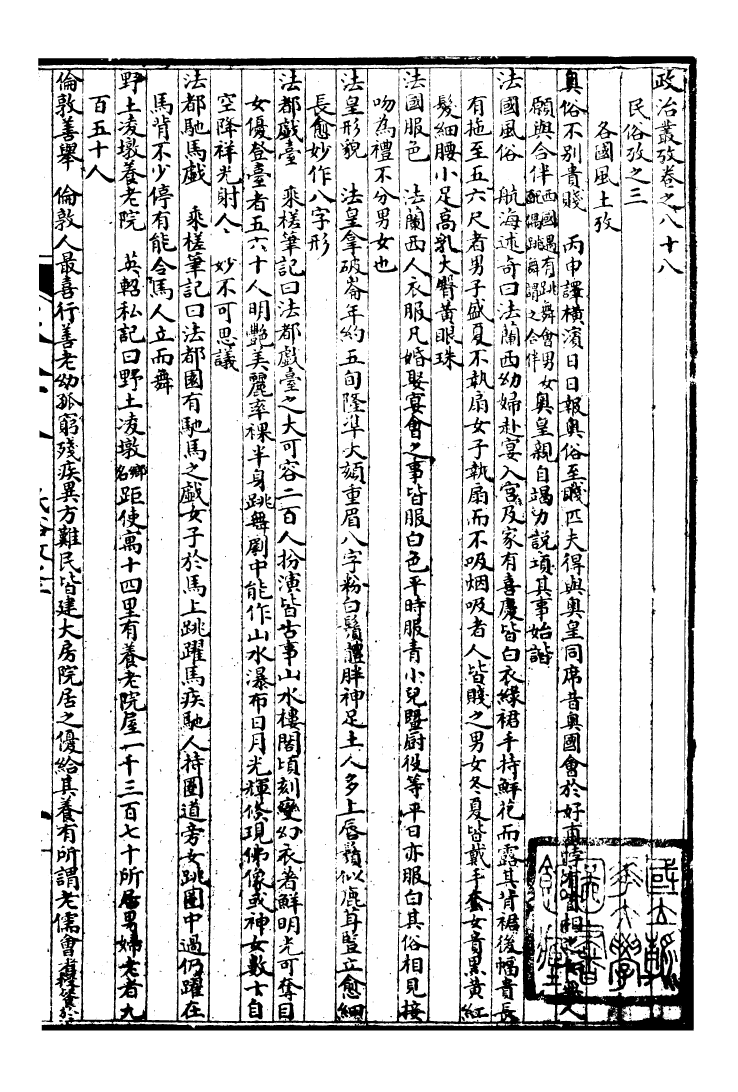 政治叢攷卷之八十八
民俗攷之三
各國風土攷
奧俗不別貴賤　丙申譯橫濱日日報奧俗至賤匹夫得與奧皇同席昔奧國會於好
願與合伴西國遇有跳舞會男女配偶跳舞謂之合伴奧皇親自竭力說項其事始諧
法國風俗　航海述奇曰法蘭西幼婦赴宴入宮及家有喜慶皆白衣綠裙手持鮮花而露其背裙後幅貴長
有拖至五六尺者男子盛夏不執扇女子執扇而不吸烟吸者人皆賤之男女冬夏皆戴手套女貴黑黃紅
髮細腰小足高乳大臀黃眼珠
法國服色　法蘭西人衣服凡婚娶宴會之事皆服白色平時服青小兒暨厨役等平日亦服白其俗相見接
吻為禮不分男女也
法皇形貌　法皇拿破崙年約五旬隆準大顙重眉八字粉白鬚體胖神足土人多上唇鬚似鹿茸豎立愈細
長愈妙作八字形
法都戲臺　乘槎筆記曰法都戲臺之大可容二百人扮演皆古事山水樓閣頃刻變幻衣著鮮明光可奪目
女優登臺者五六十人明艷美麗率裸半身跳舞劇中能作山水瀑布日月光輝倏現佛像或神女數十自
空降祥光射人、妙不可思議
法都馳馬戲　乘槎筆記曰法都園有馳馬之戲女子於馬上跳躍馬疾馳人持圈道旁女跳圈中過仍躍在
馬背不少停有能令馬人立而舞
野土凌墩養老院　英軺私記曰野土凌墩鄉名距使寓十四里有養老院屋一千三百七十所居男婦老者九
百五十人
倫敦善舉　倫敦人最喜行善老幼孤窮殘疾異方難民皆建大房院居之優給其養有所謂老儒會者